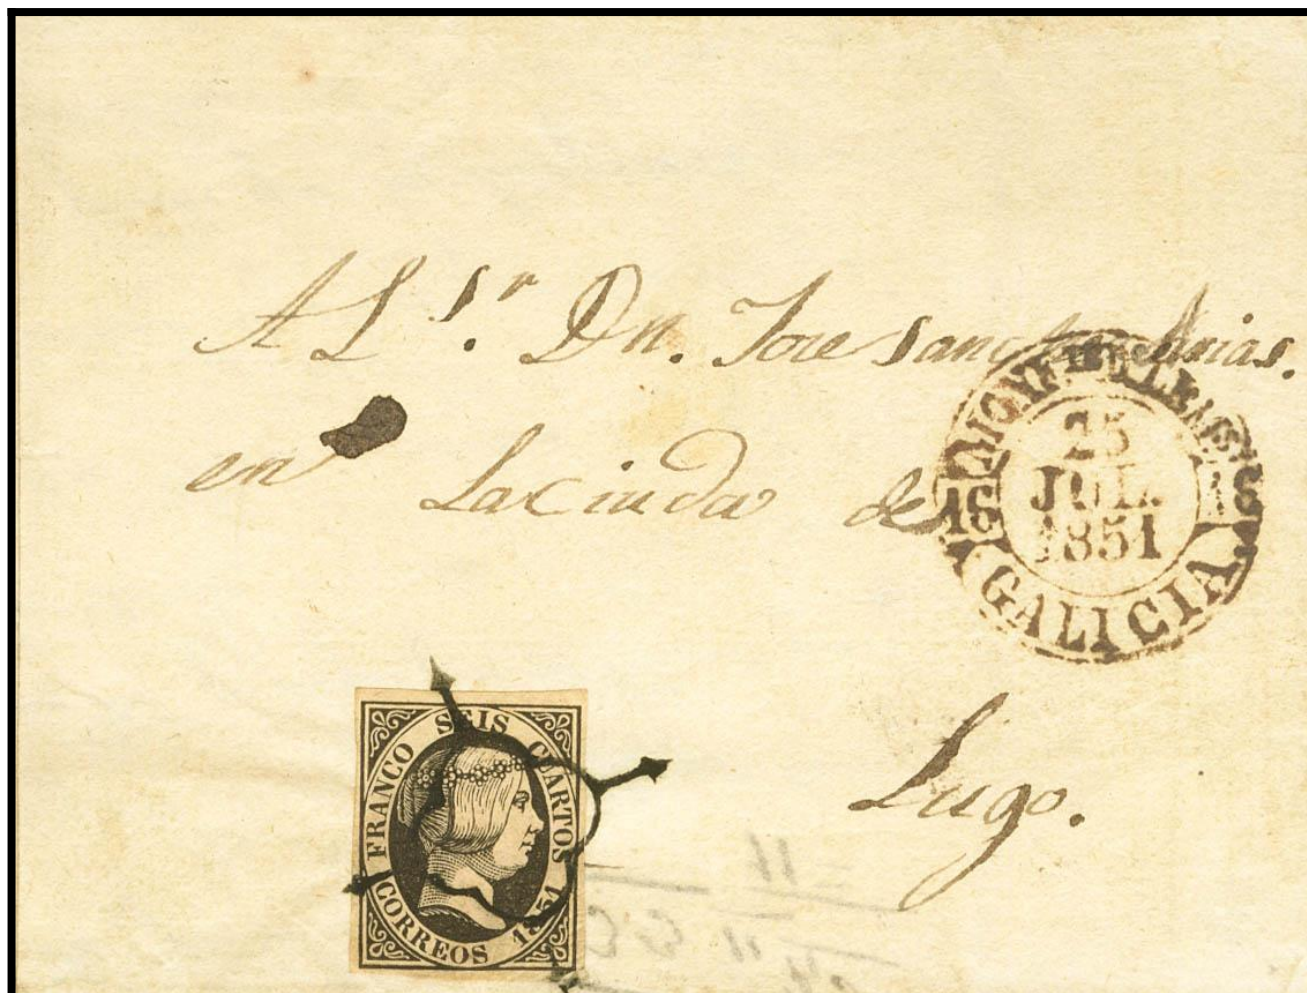 A L Sr. Dn. Jose Sanchez Arias.
en La Ciuda de
25
JUL.
1851
GALICIA
Lugo.
FRANCO SEIS CUARTOS
CORREOS 1851